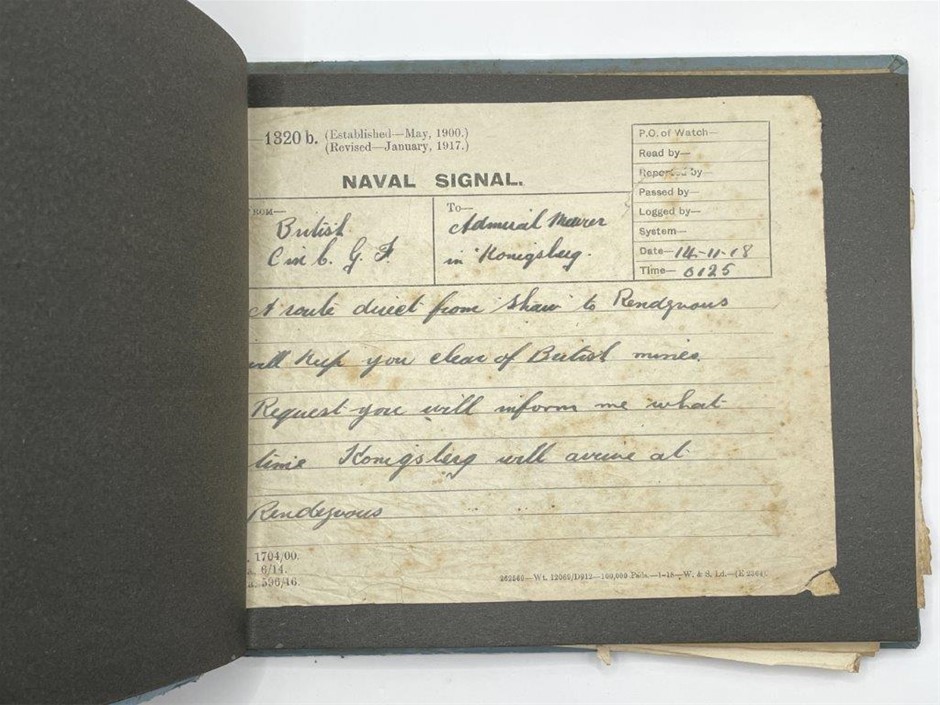 1320 b. (Established—May, 1900.)
(Revised—January, 1917.)
NAVAL SIGNAL.
P.O. of Watch—
Read by—
Reported by—
Passed by—
Logged by—
System—
Date— 14-11-18
Time— 0125
ROM—
British
C in C. G. F.
To—
Admiral Meurer
in Konigsberg.
A route direct from Shaw to Rendezvous
will keep you clear of British mines.
Request you will inform me what
time Konigsberg will arrive at
Rendezvous
1704/00.
6/14.
596/16.
262569—Wt. 12069/D912—100,000 Pads.—1-18—W. & S. Ld.—(E 2364).